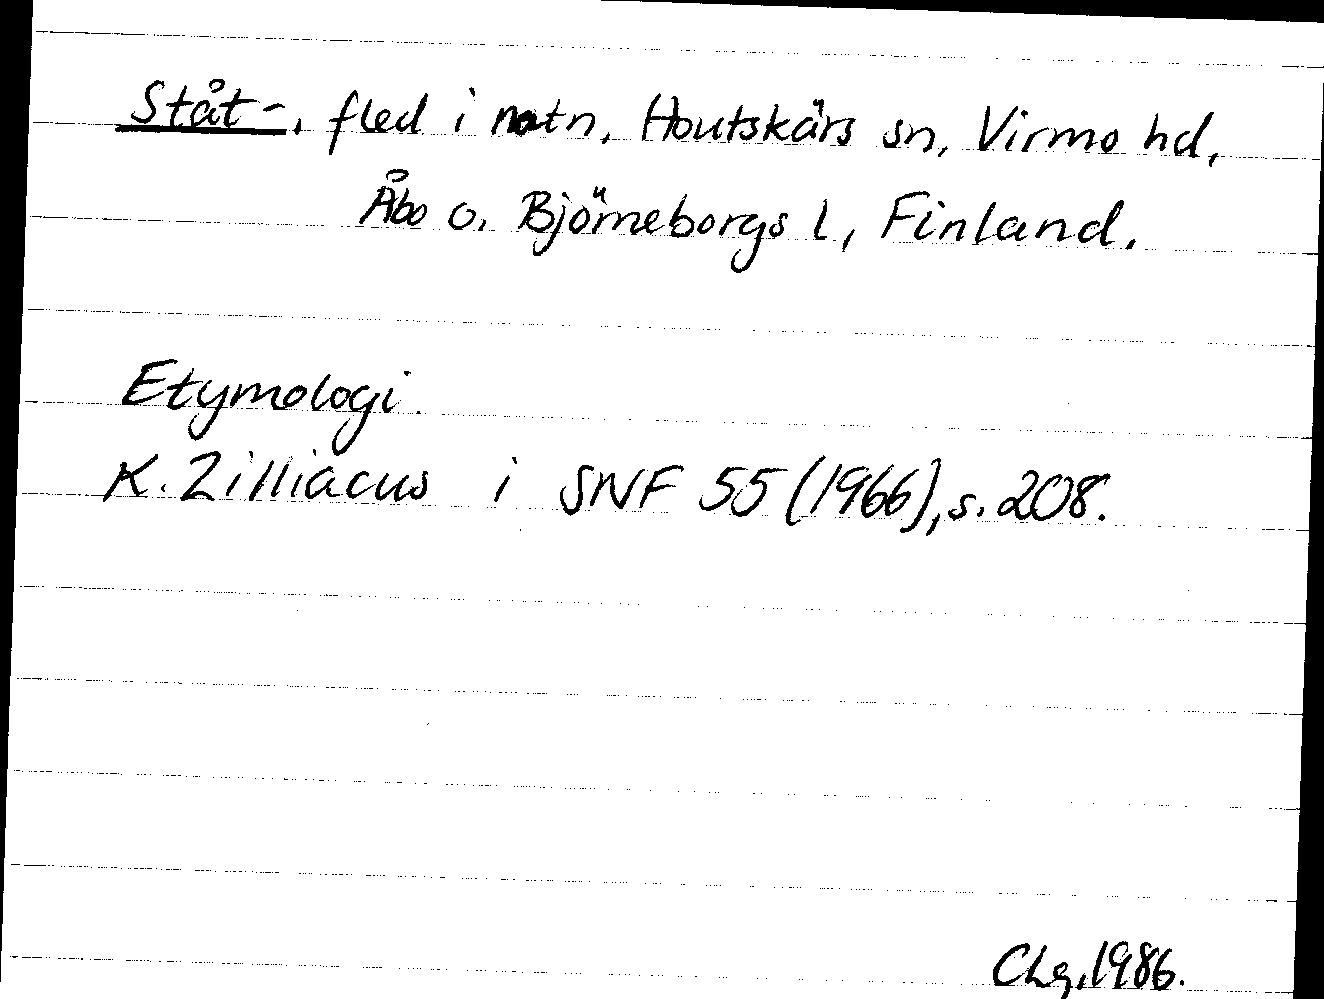 Ståt-, fled i natn, Houtskärs sn, Virmo hd,
Åbo o. Björneborgs l, Finland.
Etymologi.
K. Zilliacus i SNF 55 (1966), s. 208.
CLg, 1986.